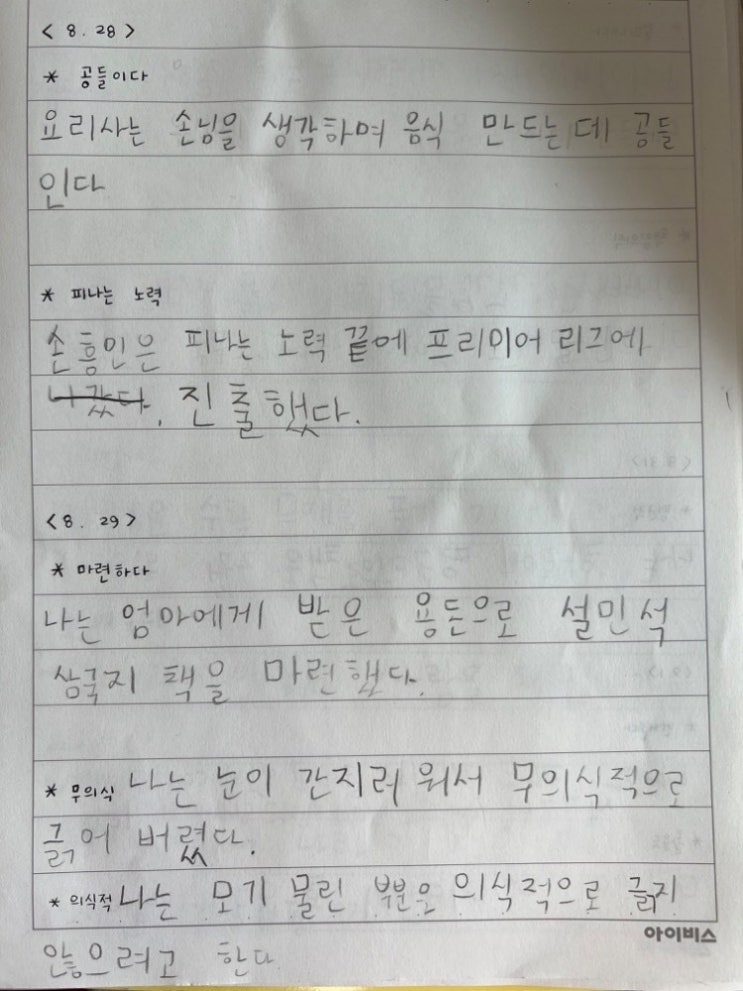 < 8. 28 >
* 공들이다
요리사는 손님을 생각하여 음식 만드는데 공들
인다
* 피나는 노력
손흥민은 피나는 노력 끝에 프리미어 리그에
나갔다. 진출했다.
< 8. 29 >
* 마련하다
나는 엄마에게 받은 용돈으로 설민석
삼국지 책을 마련했다.
* 무의식 나는 눈이 간지러워서 무의식적으로
긁어 버렸다.
* 의식적 나는 모기 물린 부분은 의식적으로 긁지
아이비스
않으려고 한다